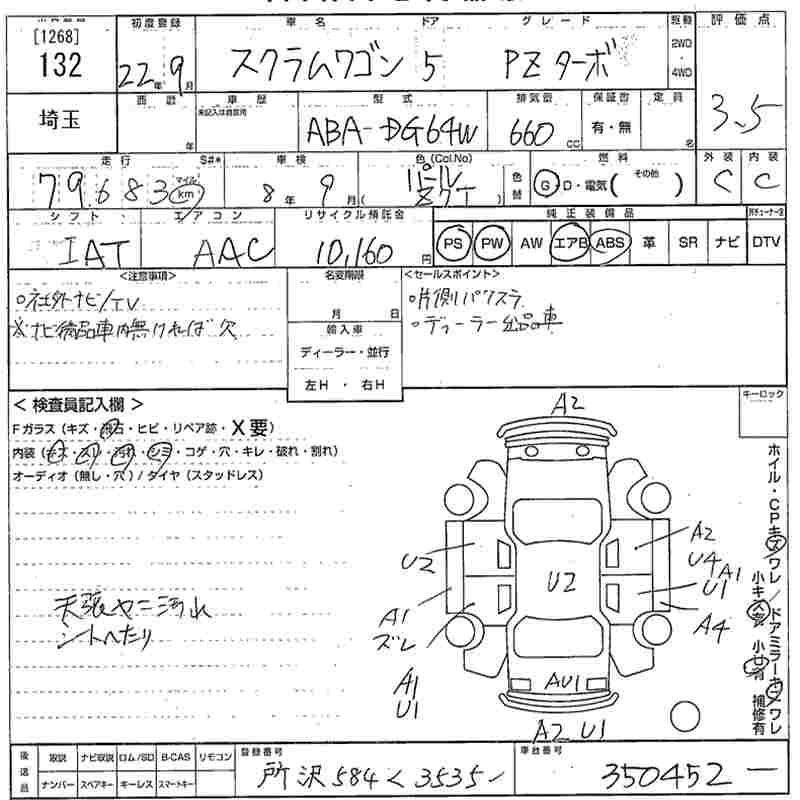 [1268]
132
初度登録
22年 9月
車名 ドア グレード
スクラムワゴン 5 PZターボ
駆動
2WD
・
4WD
評価点
3.5
埼玉
西暦
年
車歴
未記入は自家用
型式
ABA-DG64W
排気量
660 CC
保証書
有・無
定員
名
走行 S#*
79,683 マイル km
車検
8年 9月
色(Col.No)
パール
Z7T
色替
燃料
G・D・電気( その他 )
外装
C
内装
C
シフト
IAT
エアコン
AAC
リサイクル預託金
10,160円
純正装備品
PS PW AW エアB ABS 革 SR ナビ DTV
<注意事項>
○社外ナビ/TV
※ナビ備品車内無ければ欠
名変期限
月 日
輸入車
ディーラー・並行
左H ・ 右H
<セールスポイント>
○片側パワスラ
○ディーラー出品車
<検査員記入欄>
Fガラス(キズ・飛石・ヒビ・リペア跡・X要)
内装(キズ・スリ・汚れ・シミ・コゲ・穴・キレ・破れ・割れ)
オーディオ(無し・穴)/タイヤ(スタッドレス)
天張ヤニ汚れ
シートヘたり
キーロック
A2
U2
A2
U4 A1
U1
U2
A1
ズレ
A4
A1
U1
AU1
A2 U1
ホイル・CPキズワレ/ドアミラーキズワレ
小キズ有 小凹有 補修有
後送品
取説 ナビ取説 ロム/SD B-CAS リモコン
ナンバー スペアキー キーレス スマートキー
登録番号
所沢 584 く 3535
車台番号
350452